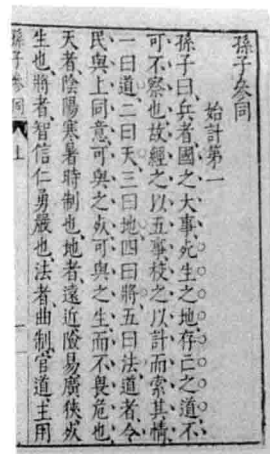 孫子參同
始計第一
孫子曰兵者國之大事死生之地存亡之道不
可不察也故經之以五事校之以計而索其情
一曰道二曰天三曰地四曰將五曰法道者令
民與上同意可與之死可與之生而不畏危也
天者陰陽寒暑時制也地者遠近險易廣狹死
生也將者智信仁勇嚴也法者曲制官道主用
孫子參同
上